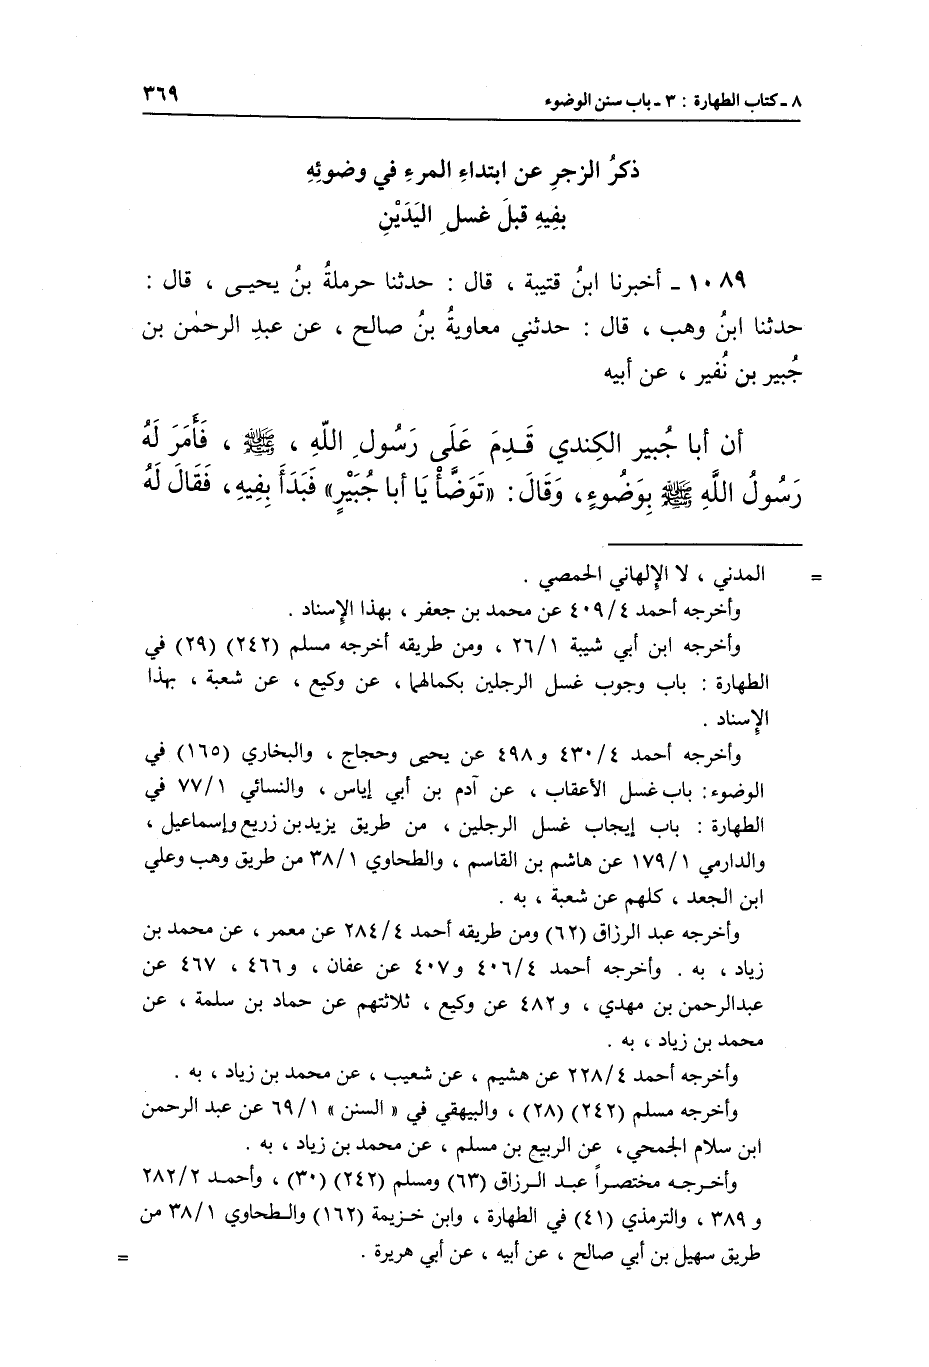 ٨ - كتاب الطهارة : ٣ - باب سنن الوضوء ٣٦٩
ذكرُ الزجرِ عن ابتداءِ المرءِ في وضوئِهِ
بفِيهِ قبلَ غسلِ اليَدَيْنِ
١٠٨٩ - أخبرنا ابنُ قتيبة ، قال : حدثنا حرملةُ بنُ يحيـى ، قال :
حدثنا ابنُ وهب ، قال : حدثني معاويةُ بنُ صالح ، عن عبدِ الرحمٰن بن
جُبير بن نُفير ، عن أبيه
أن أبا جُبير الكِندي قَـدِمَ عَلَى رَسُولِ اللّهِ ، ﷺ ، فَأَمَرَ لَهُ
رَسُولُ اللَّهِ ﷺ بِوَضُوءٍ، وَقَالَ: «تَوَضَّأْ يَا أبا جُبَيْرٍ» فَبَدَأَ بِفِيهِ، فَقَالَ لَهُ
= المدني ، لا الإِلهاني الحمصي .
وأخرجه أحمد ٤٠٩/٤ عن محمد بن جعفر ، بهذا الإِسناد .
وأخرجه ابن أبي شيبة ٢٦/١ ، ومن طريقه أخرجه مسلم (٢٤٢) (٢٩) في
الطهارة : باب وجوب غسل الرجلين بكمالهما ، عن وكيع ، عن شعبة ، بهذا
الإِسناد .
وأخرجه أحمد ٤٣٠/٤ و٤٩٨ عن يحيى وحجاج ، والبخاري (١٦٥) في
الوضوء: باب غسل الأعقاب ، عن آدم بن أبي إياس ، والنسائي ٧٧/١ في
الطهارة : باب إيجاب غسل الرجلين ، من طريق يزيد بن زريع وإسماعيل ،
والدارمي ١٧٩/١ عن هاشم بن القاسم ، والطحاوي ٣٨/١ من طريق وهب وعلي
ابن الجعد ، كلهم عن شعبة ، به .
وأخرجه عبد الرزاق (٦٢) ومن طريقه أحمد ٢٨٤/٤ عن معمر ، عن محمد بن
زياد ، به . وأخرجه أحمد ٤٠٦/٤ و٤٠٧ عن عفان ، و٤٦٦ ، ٤٦٧ عن
عبدالرحمن بن مهدي ، و٤٨٢ عن وكيع ، ثلاثتهم عن حماد بن سلمة ، عن
محمد بن زياد ، به .
وأخرجه أحمد ٢٢٨/٤ عن هشيم ، عن شعيب ، عن محمد بن زياد ، به .
وأخرجه مسلم (٢٤٢) (٢٨) ، والبيهقي في « السنن » ٦٩/١ عن عبد الرحمن
ابن سلام الجمحي ، عن الربيع بن مسلم ، عن محمد بن زياد ، به .
وأخـرجـه مختصـراً عبـد الـرزاق (٦٣) ومسلم (٢٤٢) (٣٠) ، وأحمـد ٢٨٢/٢
و ٣٨٩ ، والترمذي (٤١) في الطهارة ، وابن خـزيمة (١٦٢) والطحاوي ٣٨/١ من
طريق سهيل بن أبي صالح ، عن أبيه ، عن أبي هريرة . =